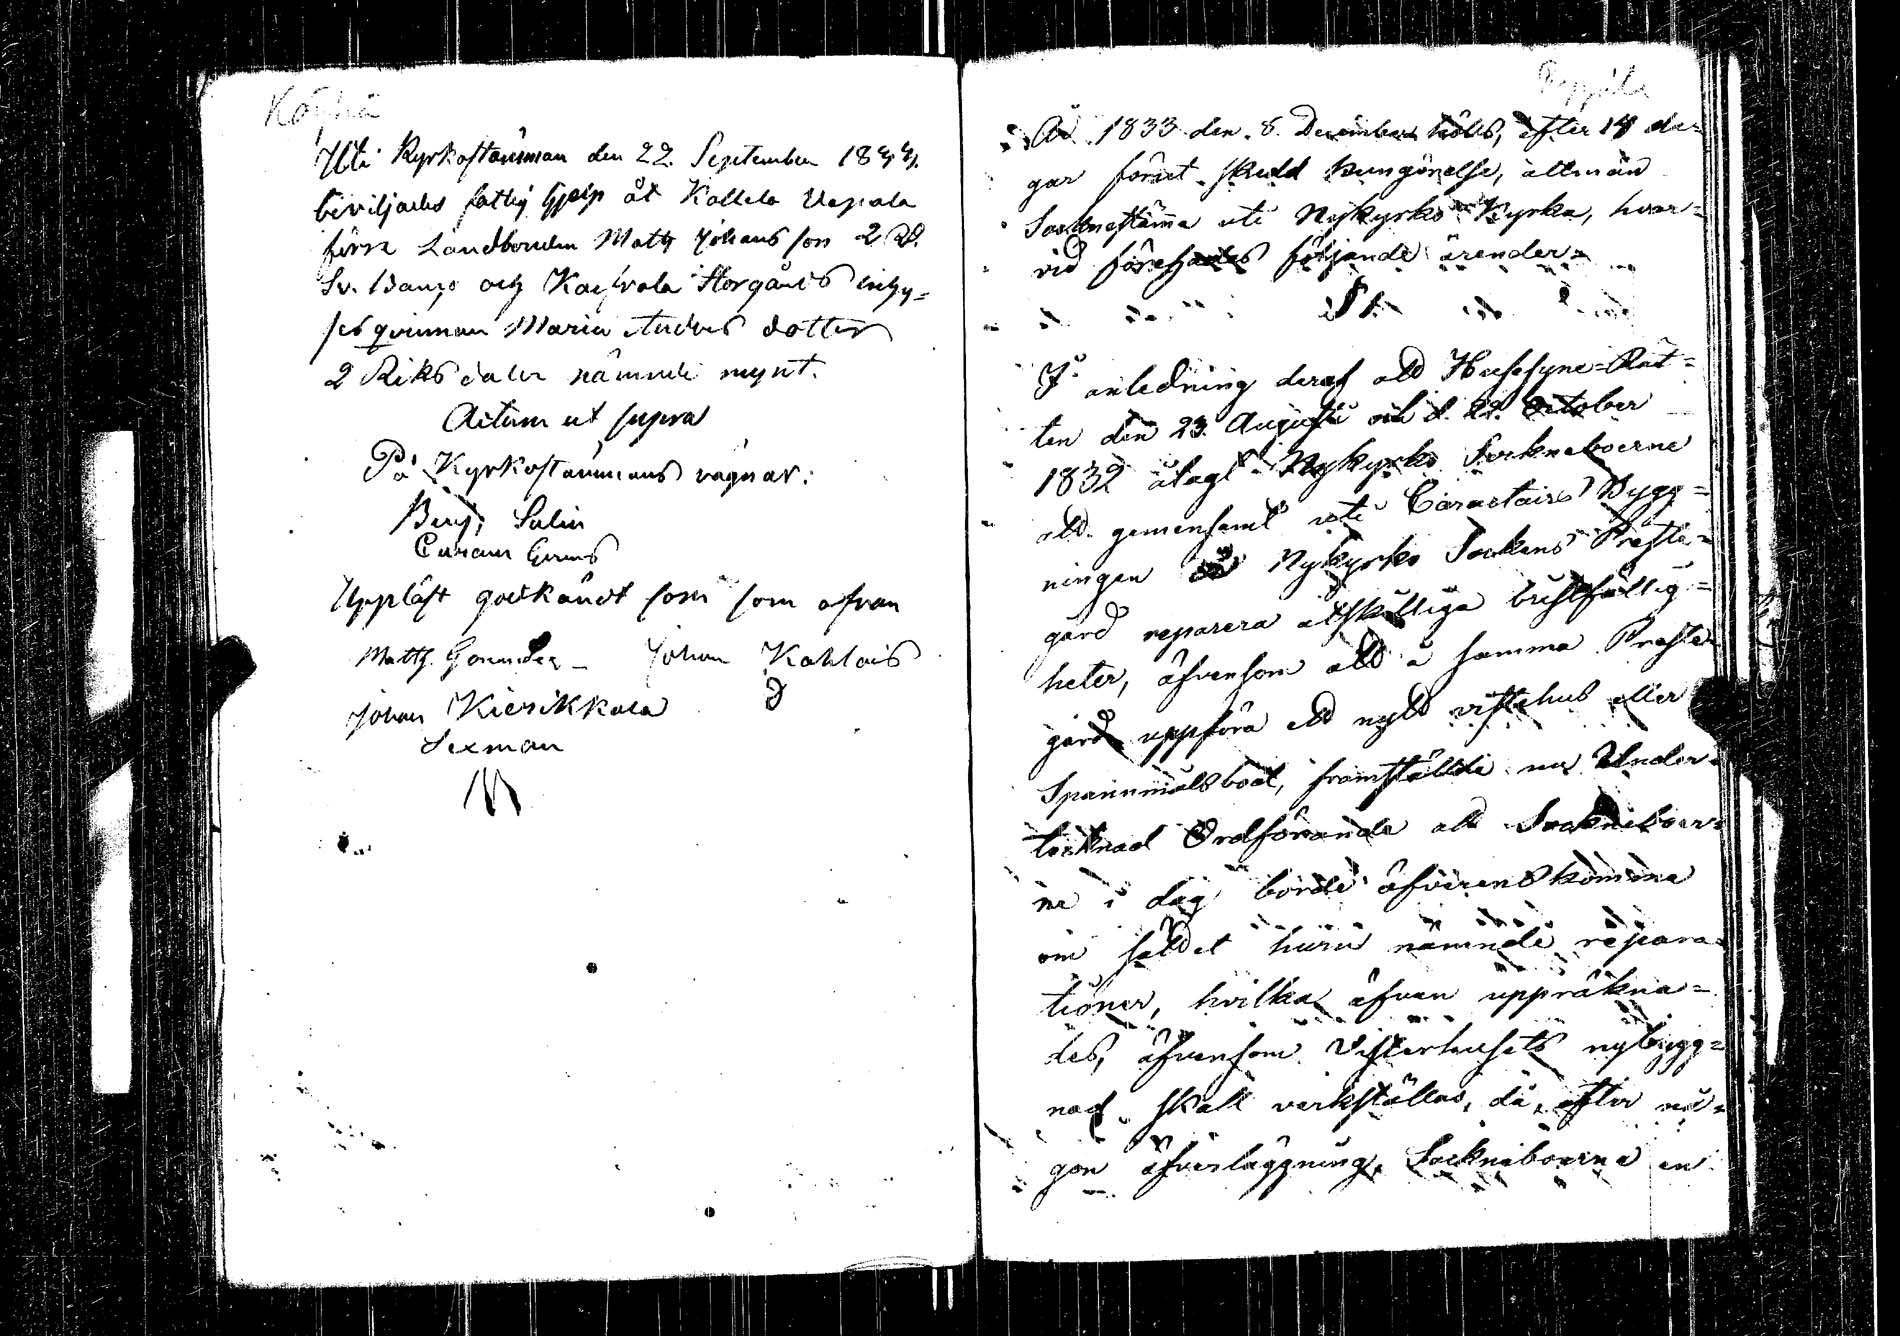 Uti Kyrkostämman den 22. September 1844.
beviljades fattig hjelp åt Kallela Uepala
förre Landbonden Matth Johansson 2 Rd.
Sv. Banco och Kaijvola Storgårds inhy=
ses qvinnan Maria Anders dotter
2 Riksdaler nämnde mynt.
Actum ut supra
På Kyrkostämmans vägnar:
Benj. Salin
Upplåst godkändt som som ofvan
Matth. Johan Kahlois
Johan Kierikkala
Sexman
År 1833 den 8. December hölls, efter 14 da=
gar förut skedd kungörelse, allmän
Socknestämma uti Nykyrko Kyrka, hvar=
vid förehades följande ärender=
§ 1.
I anledning deraf att Husesyne=Rät=
ten den 23. Augusti och d. 22. October
1832 ålagt Nykyrko Sockneboerne
att gemensamt uti Caractairs Bygg=
ningen å Nykyrko Sockens Preste=
gård reparera åtskilliga bristfällig=
heter, äfvensom att å samma Preste=
gård uppföra ett nytt vistehus eller
Spannmålsbod, framställde nu Under=
tecknad Ordförande att Sockneboer=
ne i dag borde öfverenskomma
om sättet huru nämnde repara=
tioner, hvilka äfven uppräkna=
des, äfvensom Visterhusets nybygg=
nad skall verkställas, då, efter nå=
gon öfverläggning, Sockneboerna en